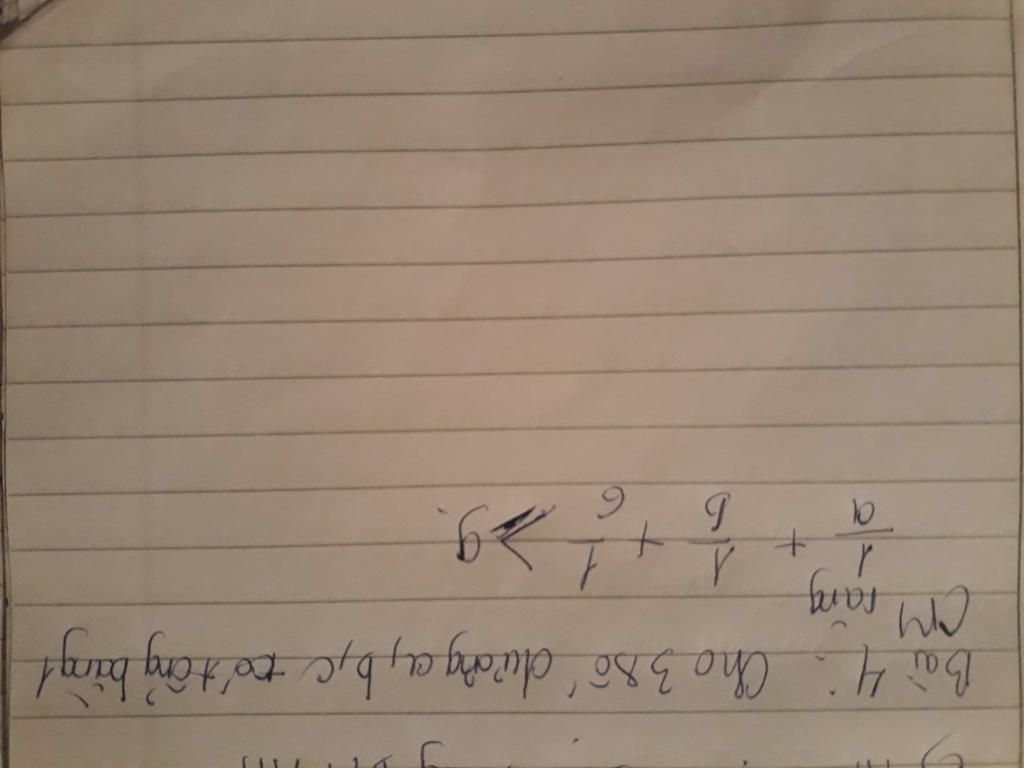 Bài 4: Cho 3 số dương a, b, c có tổng bằng 1
CM rằng
1/a + 1/b + 1/c ≥ 9.